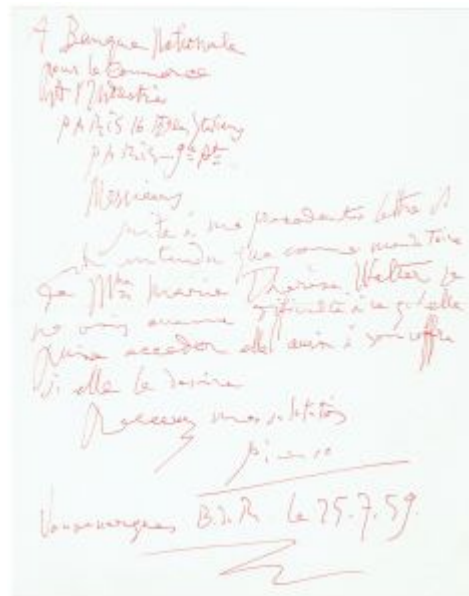 A Banque Nationale
pour le Commerce
et l'Industrie
PARIS 16 Bd des Italiens
PARIS - 9e
Messieurs
suite à ma precedente lettre il
entendu que comme mandataire
de Mme Marie Thérèse Walter je
ne vois aucune difficulté à ce qu'elle
puisse acceder elle aussi à son coffre
si elle le desire
Recevez mes salutations
Picasso
Vauvenargues B.d.R. le 25.7.59.